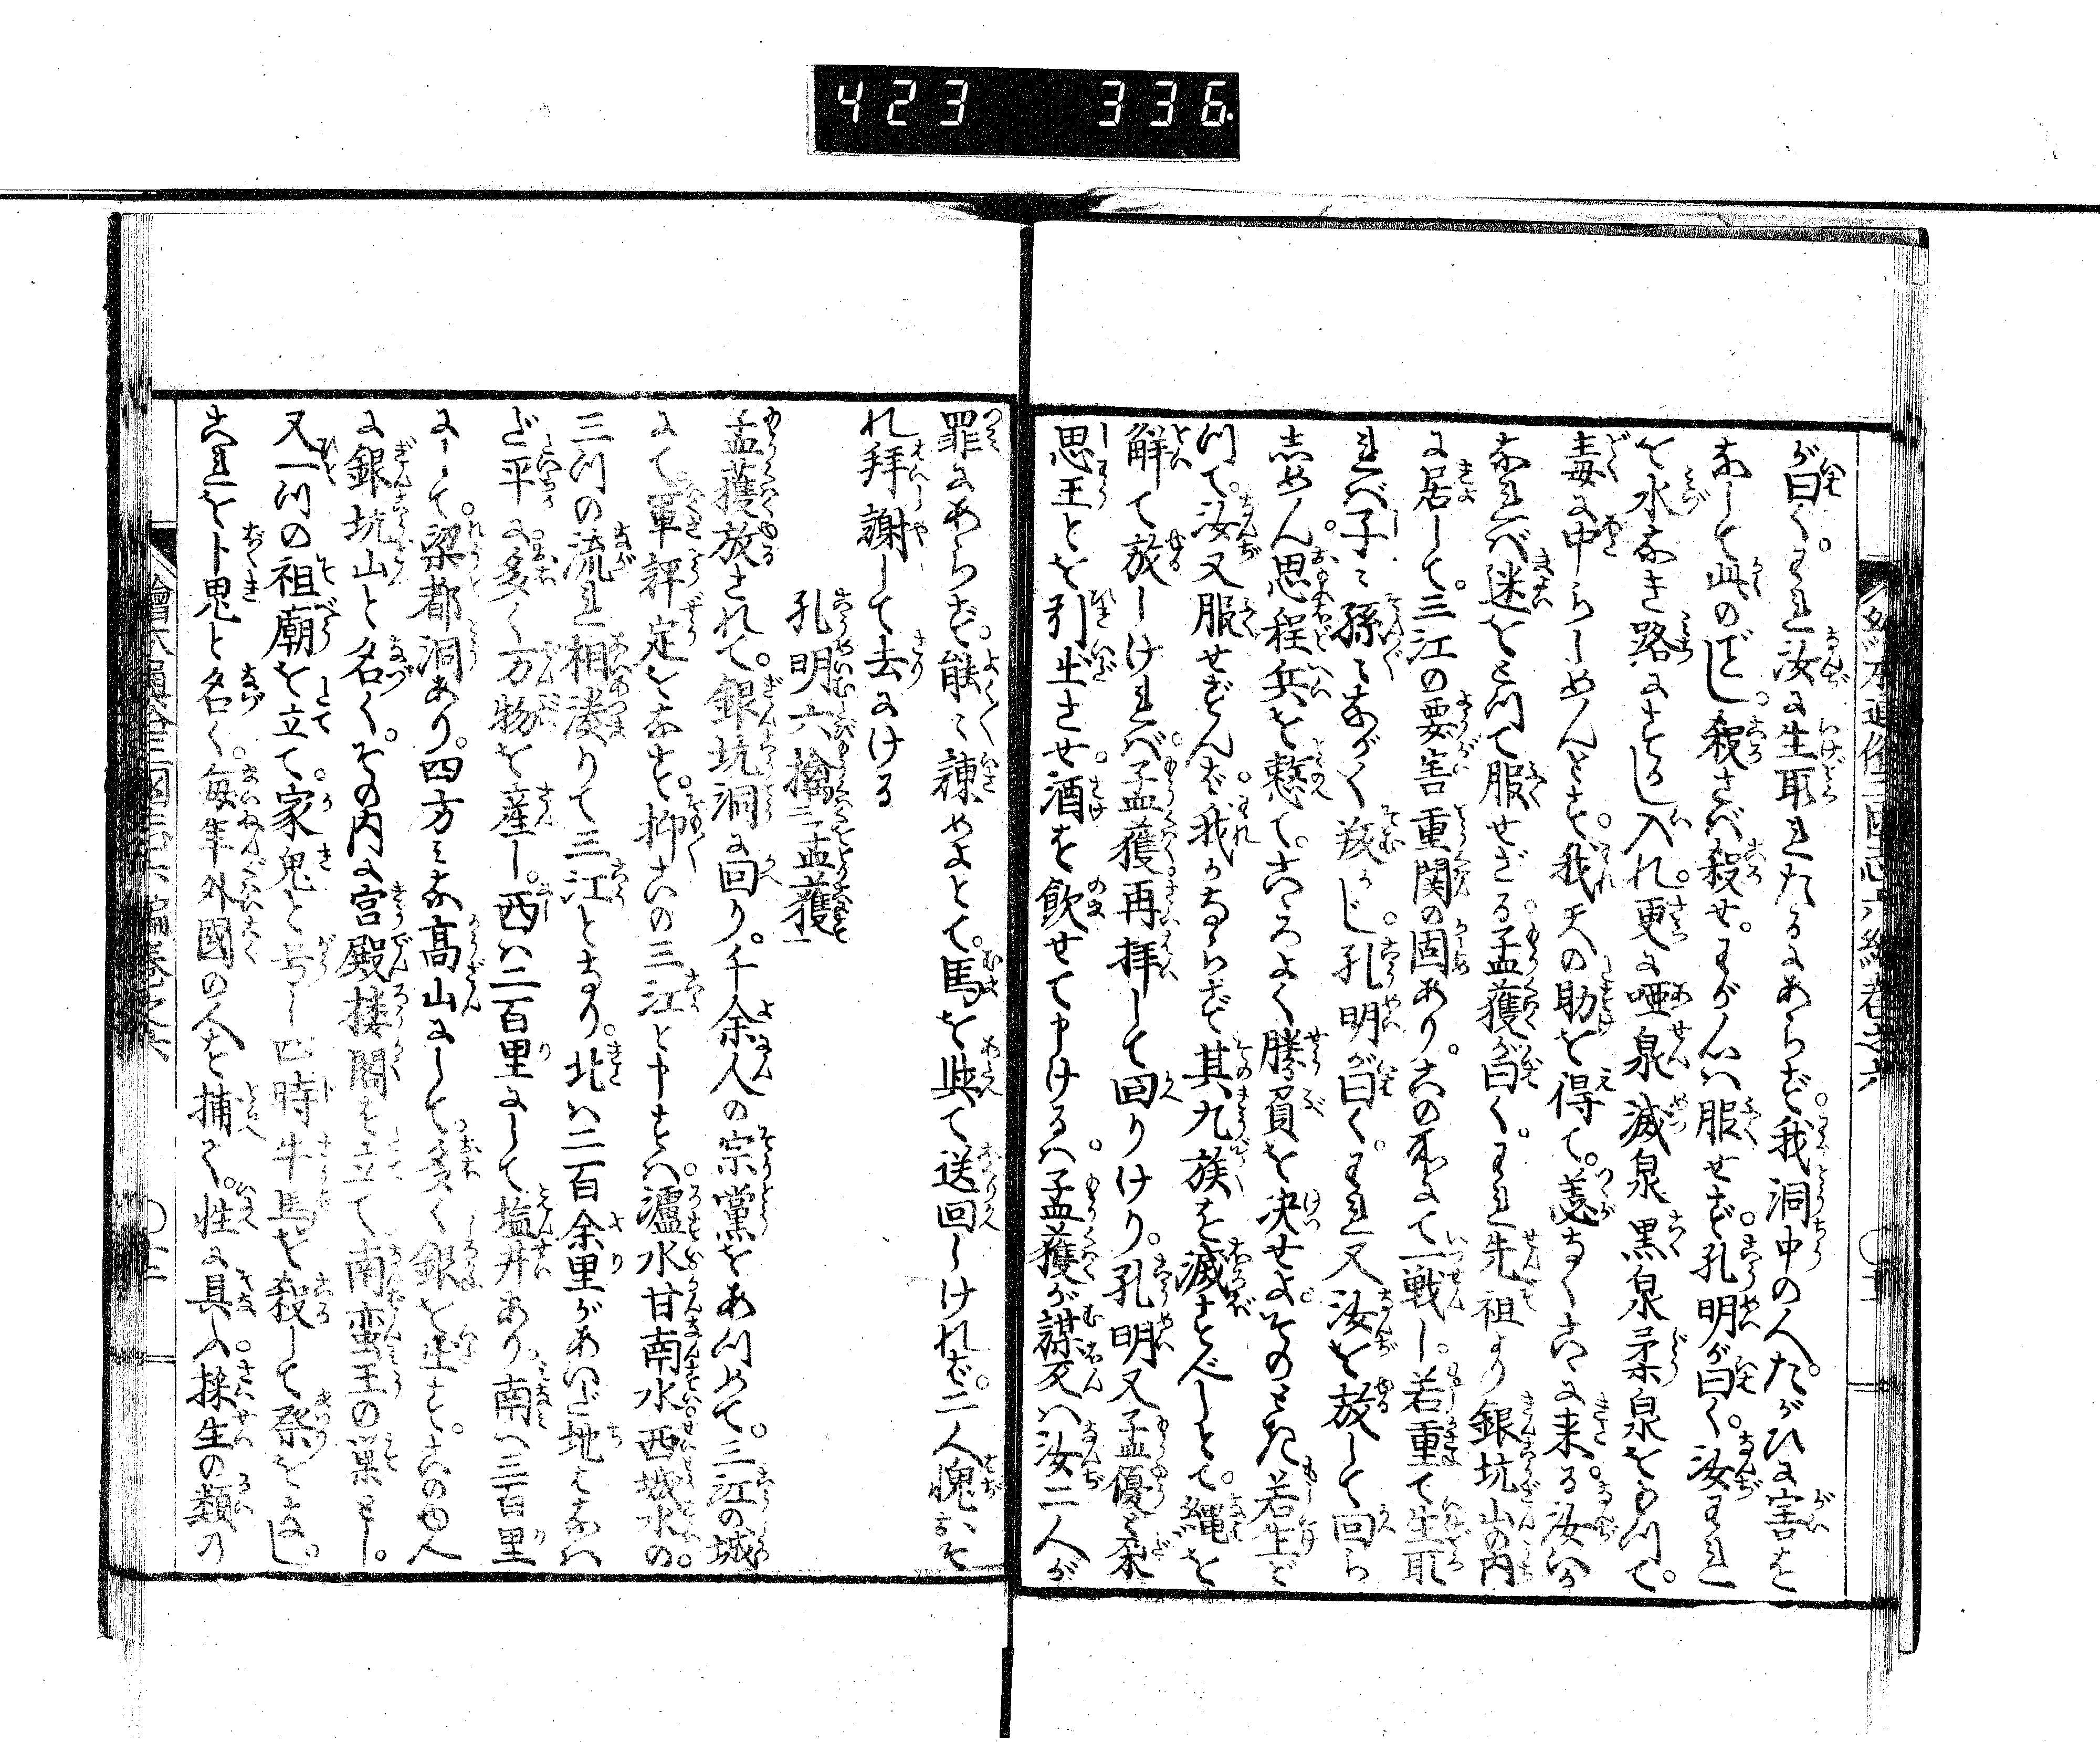 423 336
が曰く。われ汝に生取れたるにあらず。我洞中の人。たがひに害を
なして此のごとし。殺さバ殺せ。わが心ハ服せず。孔明が曰く。汝われ
を水なき路にさそひ入れ。更に啞泉滅泉黒泉柔泉をもつて。
毒に中らしめんとす。我天の助を得て。恙なくこゝに来る。汝なが
なれバ迷をとつて服せざる。孟獲が曰く。われ先祖より銀坑山の内
に居して。三江の要害重関の固あり。この所にて一戦し。若重て生取
れバ子ミ孫ミながく叛かじ。孔明が曰く。われ又汝を放して回ら
しめん。思程兵を整て。こゝろよく勝負を决せよ。そのとき若生ど
つて。汝又服せずんバ。我かならず其九族を滅すべしとて。縄を
解て放しけれバ。孟獲再拝して回りけり。孔明又孟優と朶
思王とを引出させ。酒を飲せて申けるハ。孟獲が謀反ハ汝二人が
罪にあらず。能ミ諫めよとて。馬を與て送回しけれバ。二人愧おそ
れ拝謝して去にける
孔明六擒二孟獲一
孟獲放されて。銀坑洞に回り。千余人の宗黨をあつめて。三江の城
にて。軍評定をなす。抑この三江と申すハ。瀘水甘南水西城水の。
三つの流れ相湊りて三江となり。北ハ二百余里があいだ地たひらか
ど平に多く万物を産し。西ハ二百里にして塩井あり。南ハ三百里
にして。梁都洞あり。四方ミな高山にして。多く銀を出す。このゆへ
に銀坑山と名く。その内に宮殿楼閣を立て南蛮王の巣とし。
又一つの祖廟を立て。家鬼と号し四時牛馬を殺して祭をなし。
これを卜鬼と名く。毎年外國の人を捕て。牲に具へ採生の類の